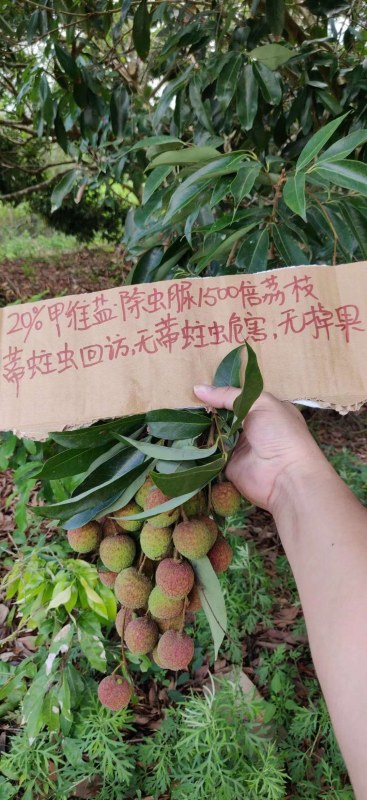 29%甲维盐除虫脲1500倍荔枝
蒂蛀虫回访,无蒂蛀虫危害,无掉果